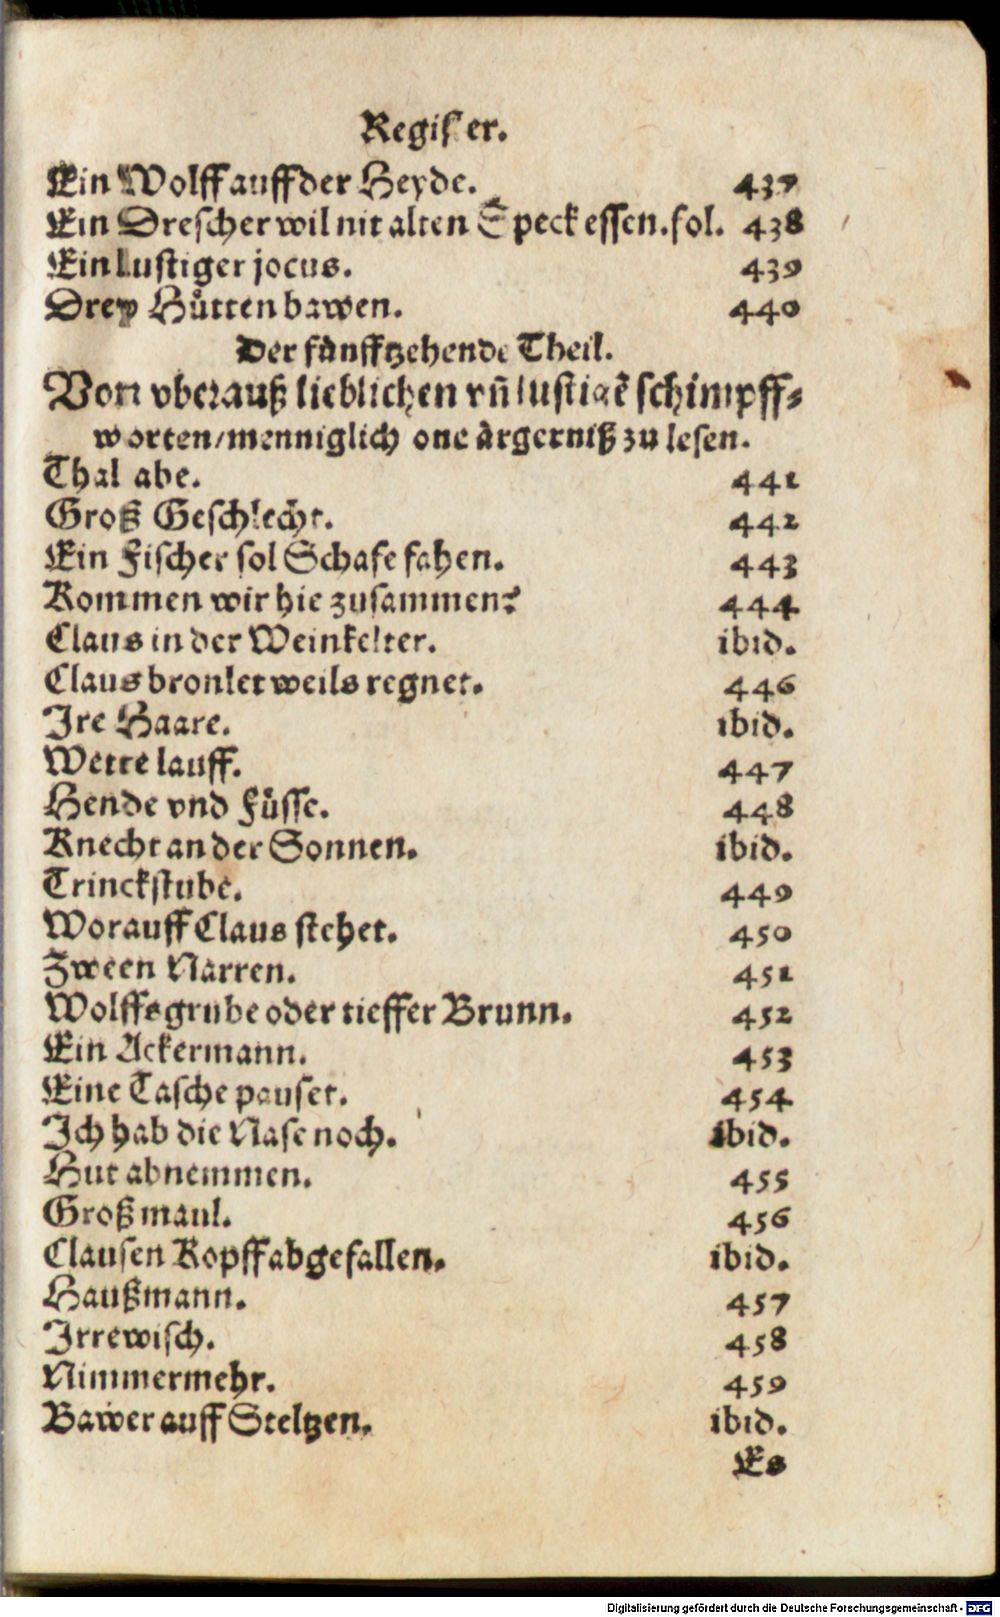 Register.
Ein Wolff auff der Heyde. 437
Ein Drescher wil nit alten Speck essen. fol. 438
Ein lustiger jocus. 439
Drey Hütten bawen. 440
Der fünfftzehende Theil.
Von vberauß lieblichen vñ lustigẽ schimpff-
worten/menniglich one ärgerniß zu lesen.
Thal abe. 441
Groß Geschlecht. 442
Ein Fischer sol Schafe fahen. 443
Kommen wir hie zusammen? 444
Claus in der Weinkelter. ibid.
Claus bronlet weils regnet. 446
Ire Haare. ibid.
Wette lauff. 447
Hende vnd Füsse. 448
Knecht an der Sonnen. ibid.
Trinckstube. 449
Worauff Claus stehet. 450
Zween Narren. 451
Wolffsgrube oder tieffer Brunn. 452
Ein Ackermann. 453
Eine Tasche pauset. 454
Ich hab die Nase noch. ibid.
Hut abnemmen. 455
Groß maul. 456
Clausen Kopff abgefallen. ibid.
Haußmann. 457
Irrewisch. 458
Nimmermehr. 459
Bawer auff Steltzen. ibid.
Es
Digitalisierung gefördert durch die Deutsche Forschungsgemeinschaft - DFG